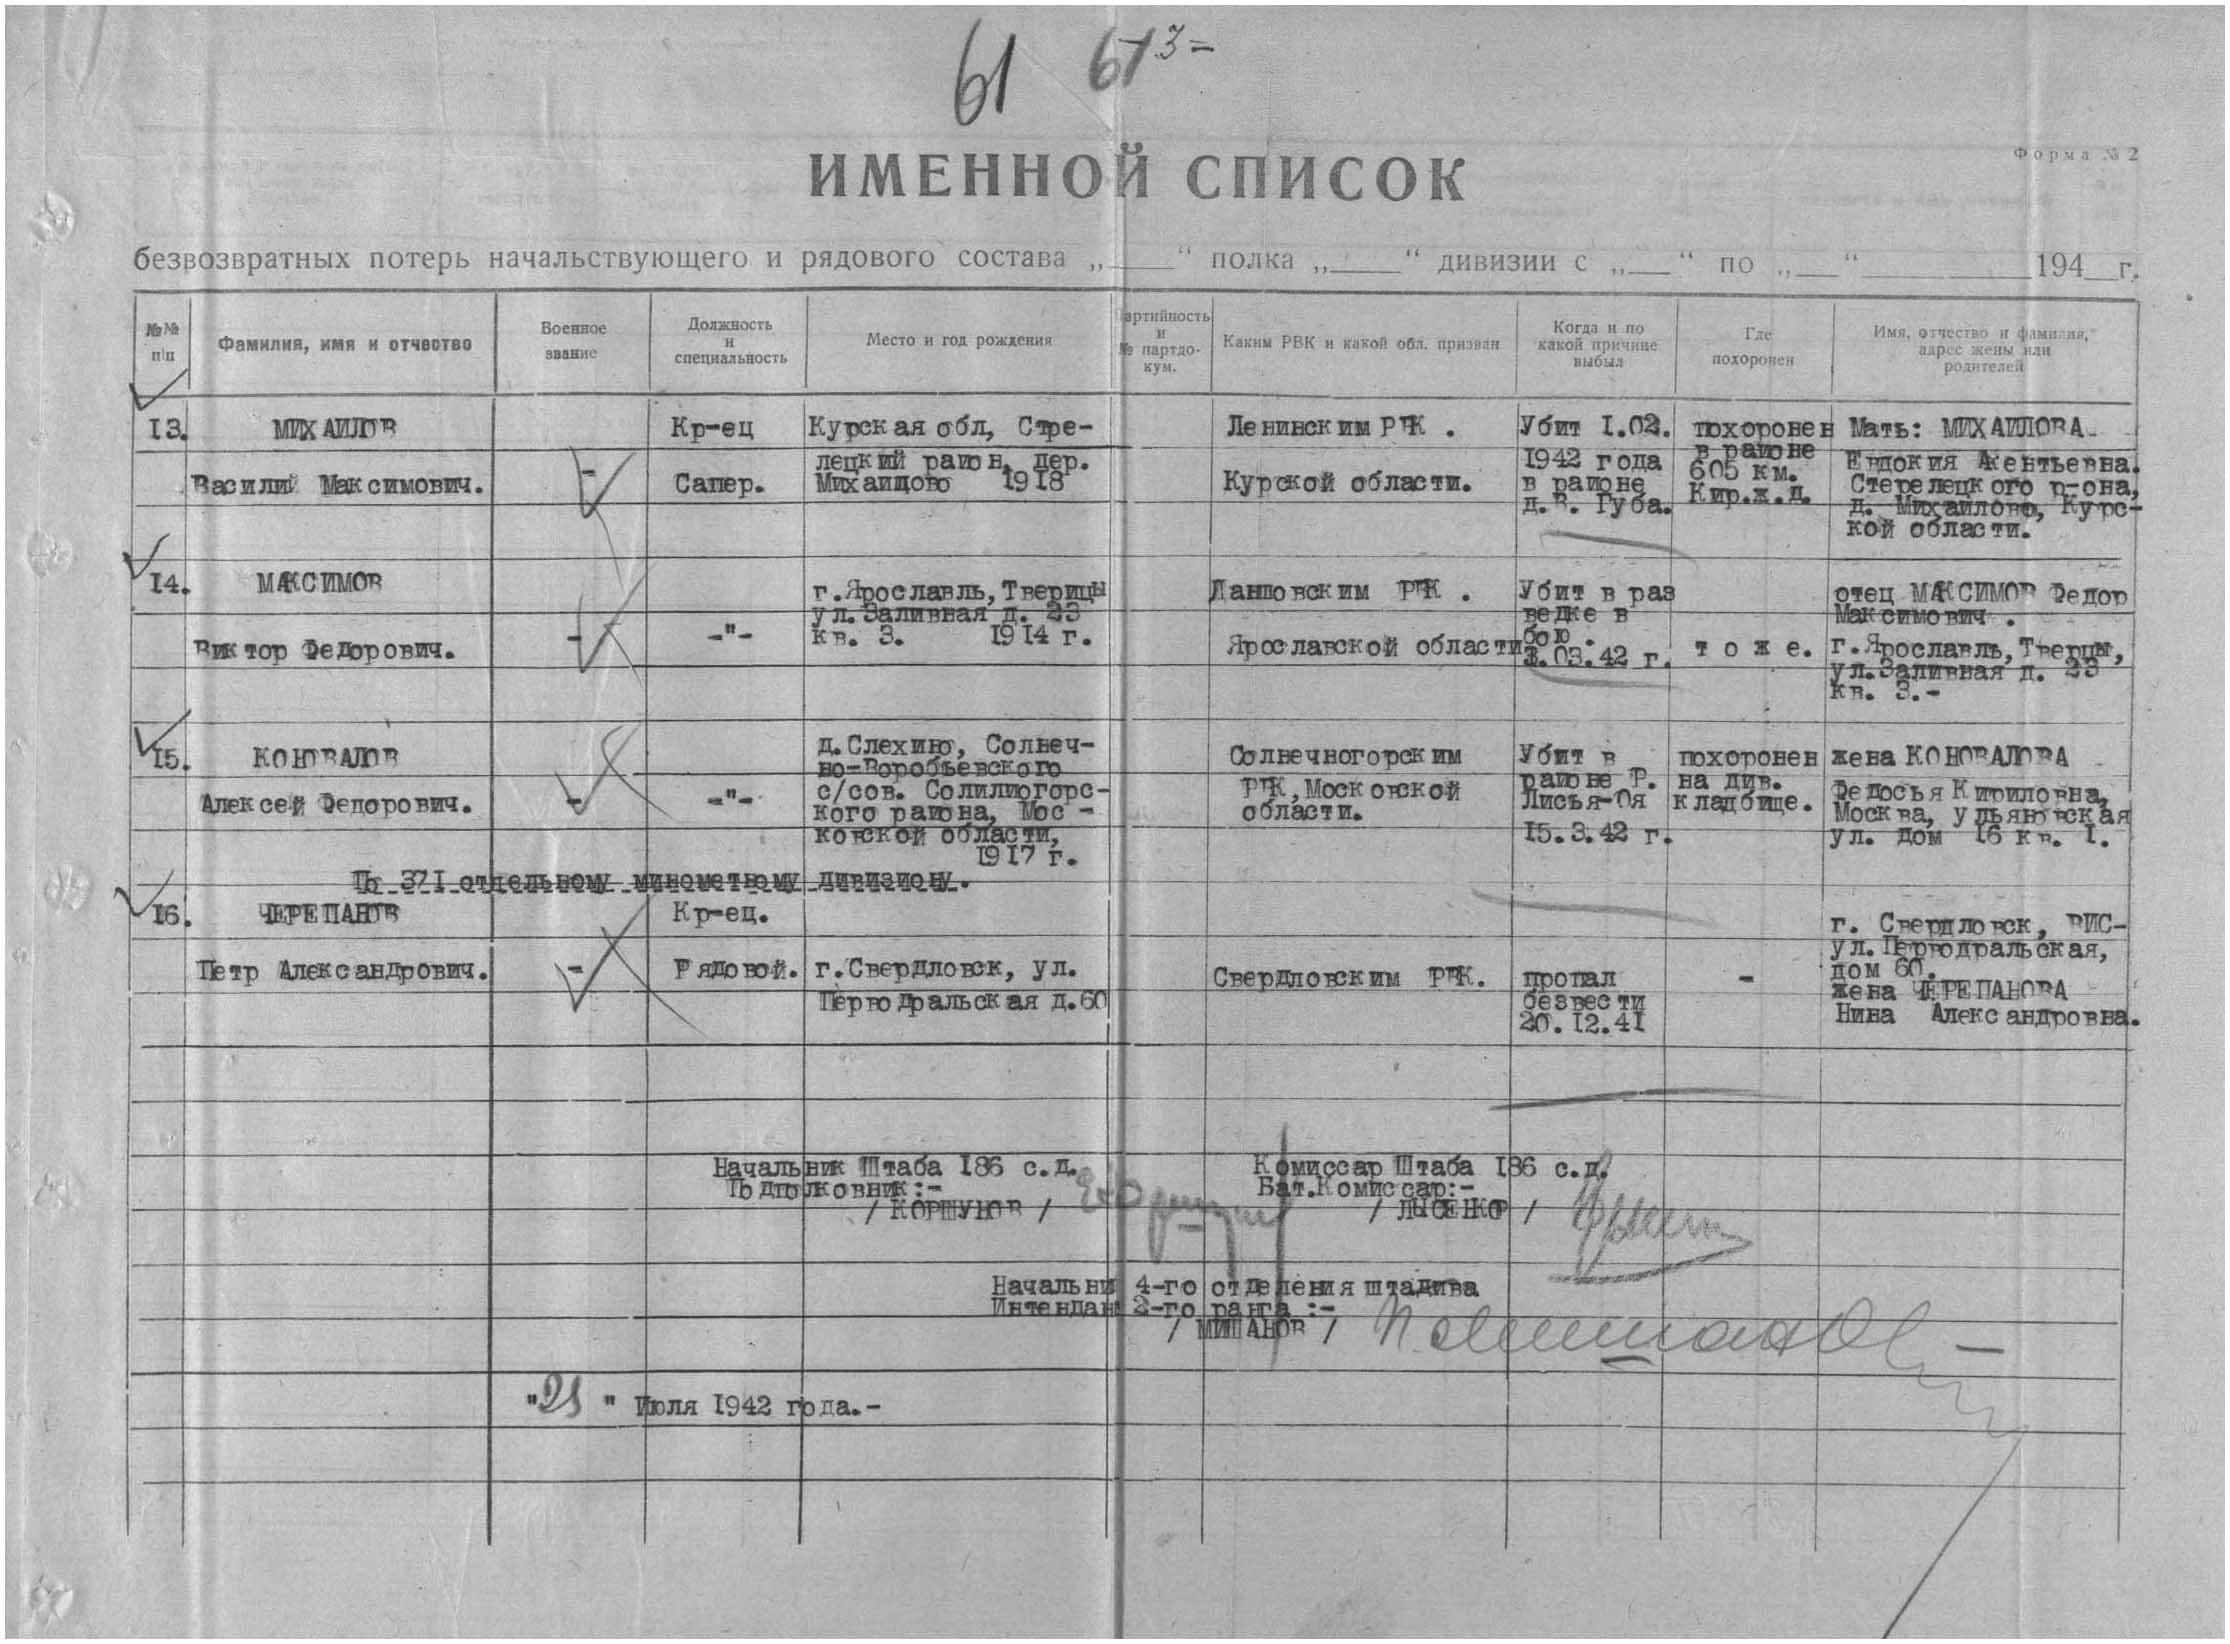 61 61 3-
Форма № 2
ИМЕННОЙ СПИСОК
безвозвратных потерь начальствующего и рядового состава „____“ полка „____“ дивизии с „___“ по „___“ ________ 194__г.
№№ п\п
Фамилия, имя и отчество
Военное
звание
Должность
и
специальность
Место и год рождения
Партийность
и
№ партдо-
кум.
Каким РВК и какой обл. призван
Когда и по
какой причине
выбыл
Где
похоронен
Имя, отчество и фамилия,
адрес жены или
родителей
13.
МИХАИЛОВ
Василий Максимович.
-
Кр-ец
Сапер.
Курская обл, Стре-
лецкий район, дер.
Михаицово 1918
Ленинским РВК .
Курской области.
Убит 1.02.
1942 года
в районе
д.В. Губа.
похоронен
в районе
605 км.
Кир.ж.д.
Мать: МИХАИЛОВА
Евдокия Акентьевна.
Стерелецкого р-она,
д. Михаилово, Курс-
кой области.
14.
МАКСИМОВ
Виктор Федорович.
-
-"-
г.Ярославль,Тверицы
ул.Заливная д. 23
кв. 3. 1914 г.
Данловским РВК .
Ярославской области
Убит в раз
ведке в
бою .
3.03.42 г.
т о ж е.
отец МАКСИМОВ Федор
Максимович .
г.Ярославль,Тверцы,
ул.Заливная д. 23
кв. 3.-
15.
КОНОВАЛОВ
Алексей Федорович.
-
-"-
д.Слехино, Солнеч-
но-Воробьевского
с/сов. Солилиогорс-
кого района, Мос -
ковской области,
1917 г.
Солнечногорским
РВК,Московской
области.
Убит в
районе Р.
Лисья-Оя
15.3.42 г.
похоронен
на див.
кладбище.
жена КОНОВАЛОВА
Федосья Кириловна,
Москва, ульяновская
ул. дом 16 кв. 1.
По 371 отдельному минометному дивизиону.
16.
ЧЕРЕПАНОВ
Петр Александрович.
-
Кр-ец.
Рядовой.
г.Свердловск, ул.
Перводральская д.60
Свердловским РВК.
пропал
безвести
20.12.41
-
г. Свердловск, ВИС-
ул.Перводральская,
дом 60.
жена ЧЕРЕПАНОВА
Нина Александровна.
Начальник Штаба 186 с.д.
Подполковник:-
/ КОРШУНОВ /
Комиссар Штаба 186 с.д.
Бат.Комиссар:-
/ ЛЫСЕНКОР /
Начальни 4-го отделения штадива
Интендан 2-го ранга :-
/ МИШАНОВ /
"21" Июля 1942 года.-